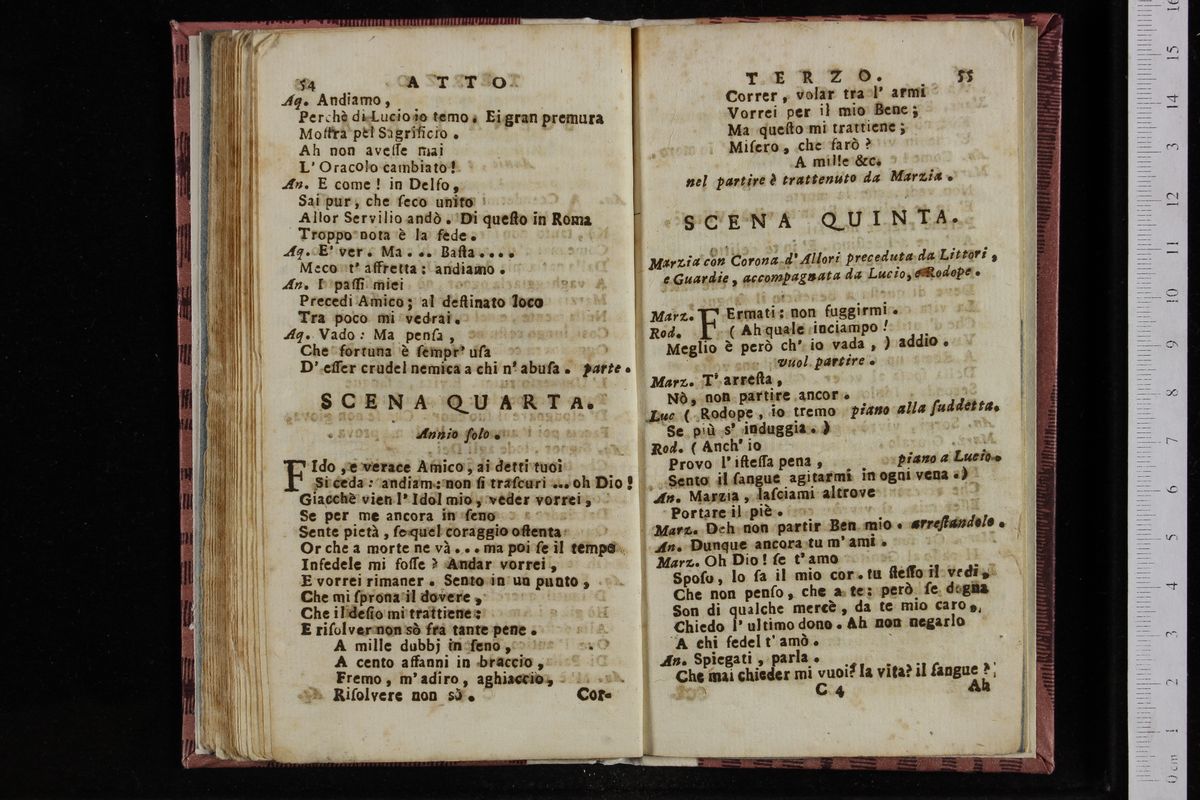 54 ATTO
Aq. Andiamo,
Perchè di Lucio io temo. Ei gran premura
Moſtra pel Sagrificio.
Ah non aveſſe mai
L' Oracolo cambiato!
An. E come! in Delfo,
Sai pur, che ſeco unito
Allor Servilio andò. Di queſto in Roma
Troppo nota è la fede.
Aq. E' ver. Ma... Baſta....
Meco t' affretta: andiamo.
An. I paſſi miei
Precedi Amico; al deſtinato loco
Tra poco mi vedrai.
Aq. Vado: Ma penſa,
Che fortuna è ſempr' uſa
D' eſſer crudel nemica a chi n' abuſa. parte.
SCENA QUARTA.
Annio ſolo.
FIdo, e verace Amico, ai detti tuoi
Si ceda: andiam: non ſi traſcuri... oh Dio!
Giacchè vien l' Idol mio, veder vorrei,
Se per me ancora in ſeno
Sente pietà, ſe quel coraggio oſtenta
Or che a morte ne và... ma poi ſe il tempo
Infedele mi foſſe? Andar vorrei,
E vorrei rimaner. Sento in un punto,
Che mi ſprona il dovere,
Che il deſio mi trattiene:
E riſolver non sò fra tante pene.
A mille dubbj in ſeno,
A cento affanni in braccio,
Fremo, m' adiro, aghiaccio,
Riſolvere non sò. Cor-
TERZO. 55
Correr, volar tra l' armi
Vorrei per il mio Bene;
Ma queſto mi trattiene;
Miſero, che farò?
A mille &c.
nel partire è trattenuto da Marzia.
SCENA QUINTA.
Marzia con Corona d' Allori preceduta da Littori,
e Guardie, accompagnata da Lucio, e Rodope.
Marz. FErmati: non fuggirmi.
Rod. ( Ah quale inciampo!
Meglio è però ch' io vada, ) addio.
vuol partire.
Marz. T' arreſta,
Nò, non partire ancor.
Luc ( Rodope, io tremo piano alla ſuddetta.
Se più s' induggia. )
Rod. ( Anch' io
Provo l' iſteſſa pena, piano a Lucio.
Sento il ſangue agitarmi in ogni vena. )
An. Marzia, laſciami altrove
Portare il piè.
Marz. Deh non partir Ben mio. arreſtandolo.
An. Dunque ancora tu m' ami.
Marz. Oh Dio! ſe t' amo
Spoſo, lo ſa il mio cor. tu ſteſſo il vedi,
Che non penſo, che a te: però ſe degna
Son di qualche mercè, da te mio caro,
Chiedo l' ultimo dono. Ah non negarlo
A chi fedel t' amò.
An. Spiegati, parla.
Che mai chieder mi vuoi? la vita? il ſangue?
C 4 Ah